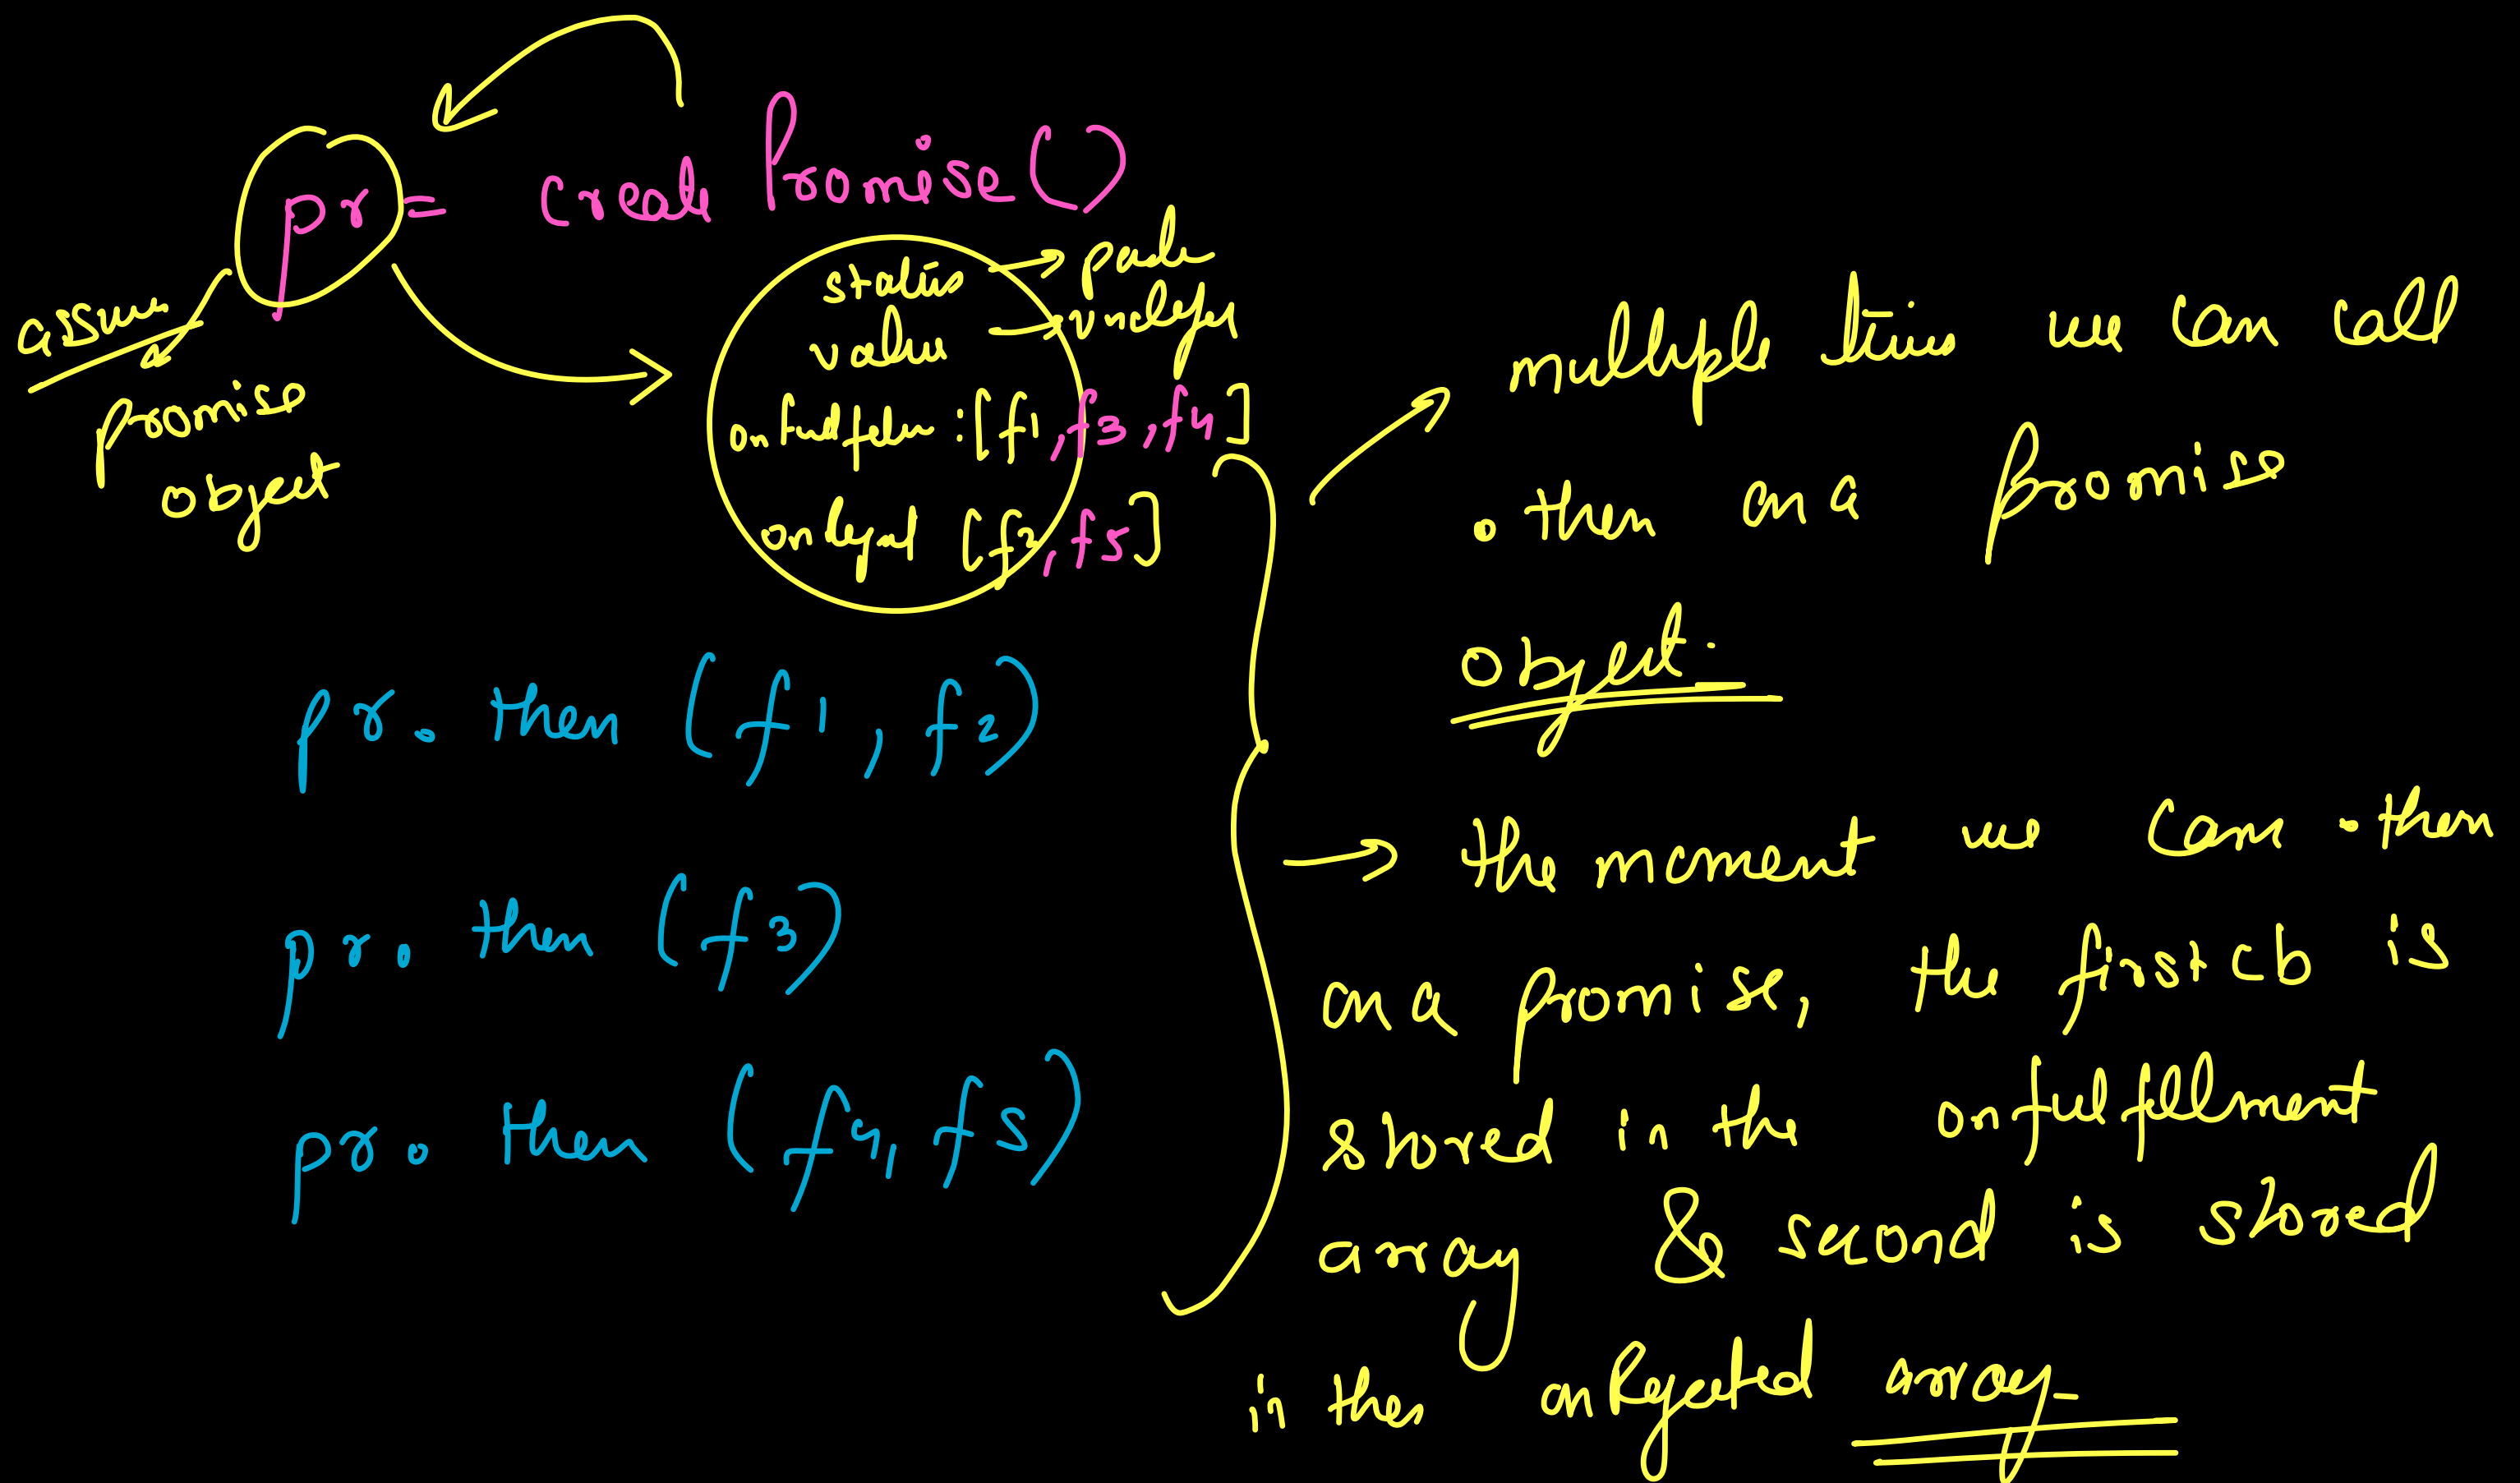 pr = create Promise()
assume
promise
object
status → pend
value → undef
onFulfilm : [f1, f3, f4]
onReject [f2, f5]
pr. then (f1, f2)
pr. then (f3)
pr. then (f4, f5)
multiple times we can call
. then on a Promise
object.
→ the moment we .then
on a promise, the first cb is
stored in the onfulfillment
array & second is stored
in the onRejected array